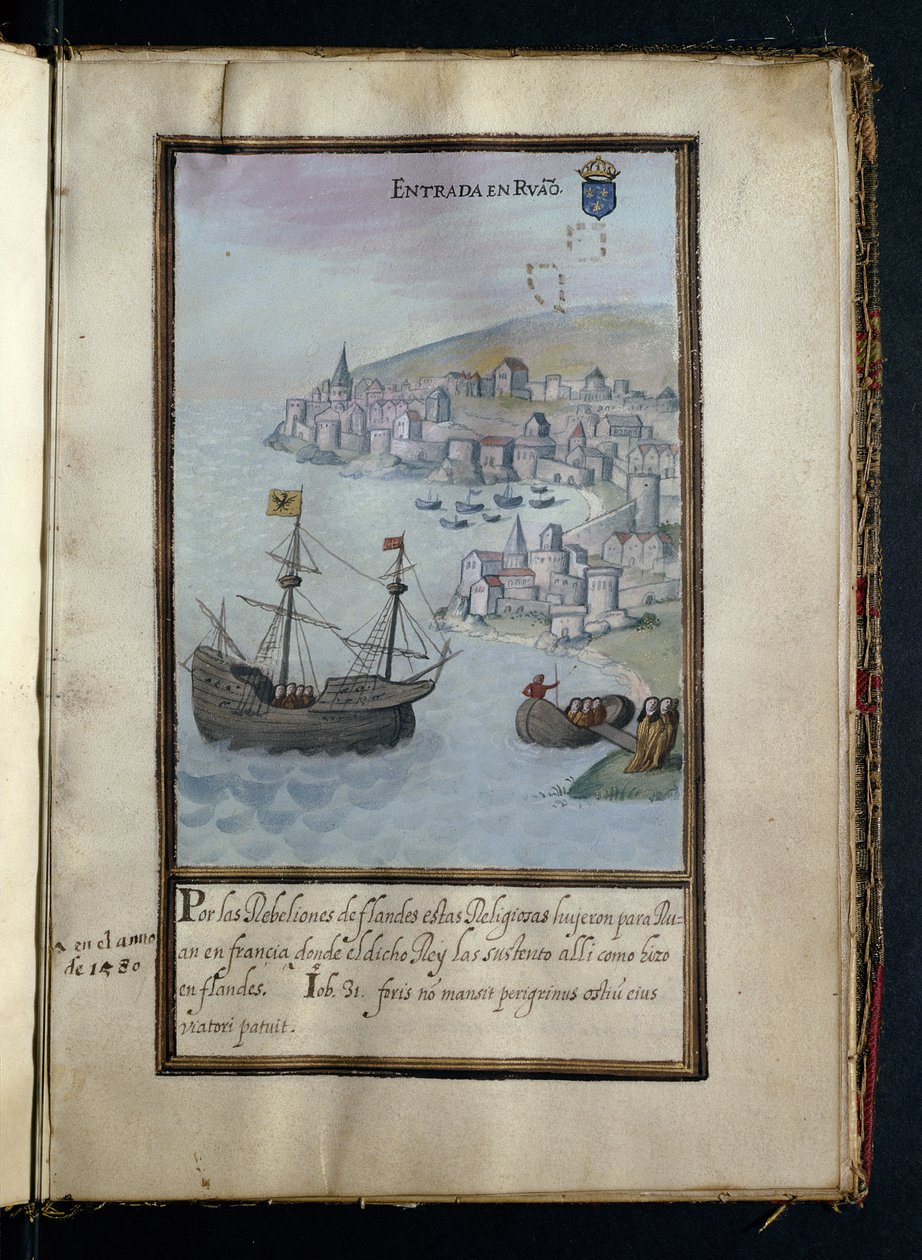 ENTRADA EN RVÃO.
Por las Rebeliones de flandes estas Religiosas huyeron para Ru=
an en francia donde el dicho Rey las sustento alli como hizo
en flandes. Iob. 31. foris nō mansit perigrinus ostiū eius
viatori patuit.
en el anno
de 1580